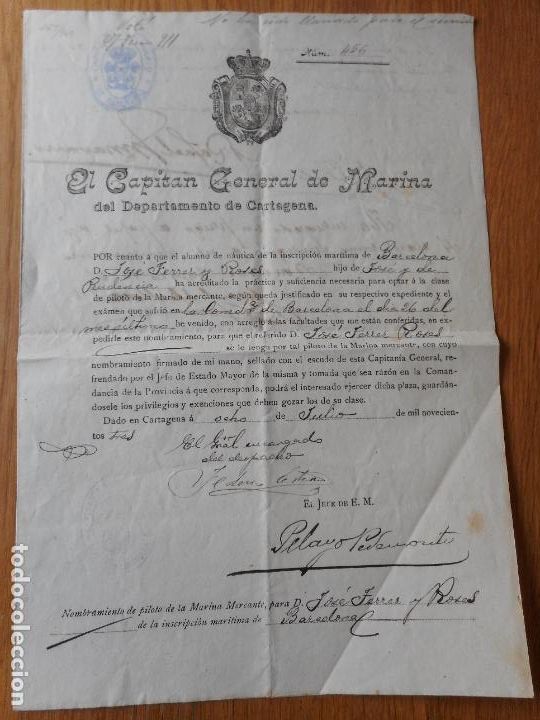 No ha sido llamado para el servicio
Núm. 466
El Capitan General de Marina
del Departamento de Cartagena.
POR cuanto á que el alumno de náutica de la inscripción marítima de Barcelona
D. José Ferrer y Roses hijo de José y de
Prudencia ha acreditado la práctica y suficiencia necesaria para optar á la clase
de piloto de la Marina mercante, según queda justificado en su respectivo expediente y el
exámen que sufrió en la Comdª de Barcelona el dia 26 del
mes último he venido, con arreglo á las facultades que me están conferidas, en ex-
pedirle este nombramiento, para que el referido D. José Ferrer Roses
se le tenga por tal piloto de la Marina mercante, con cuyo
nombramiento firmado de mi mano, sellado con el escudo de esta Capitanía General, re-
frendado por el Jefe de Estado Mayor de la misma y tomada que sea razón en la Coman-
dancia de la Provincia á que corresponda, podrá el interesado ejercer dicha plaza, guardán-
dosele los privilegios y exenciones que deben gozar los de su clase.
Dado en Cartagena á ocho de Julio de mil novecien-
tos tres
El Gral encargado
del despacho
EL JEFE DE E. M.
Pelayo Pedemonte
Nombramiento de piloto de la Marina Mercante, para D. José Ferrer y Roses
de la inscripción marítima de Barcelona
todocoleccion